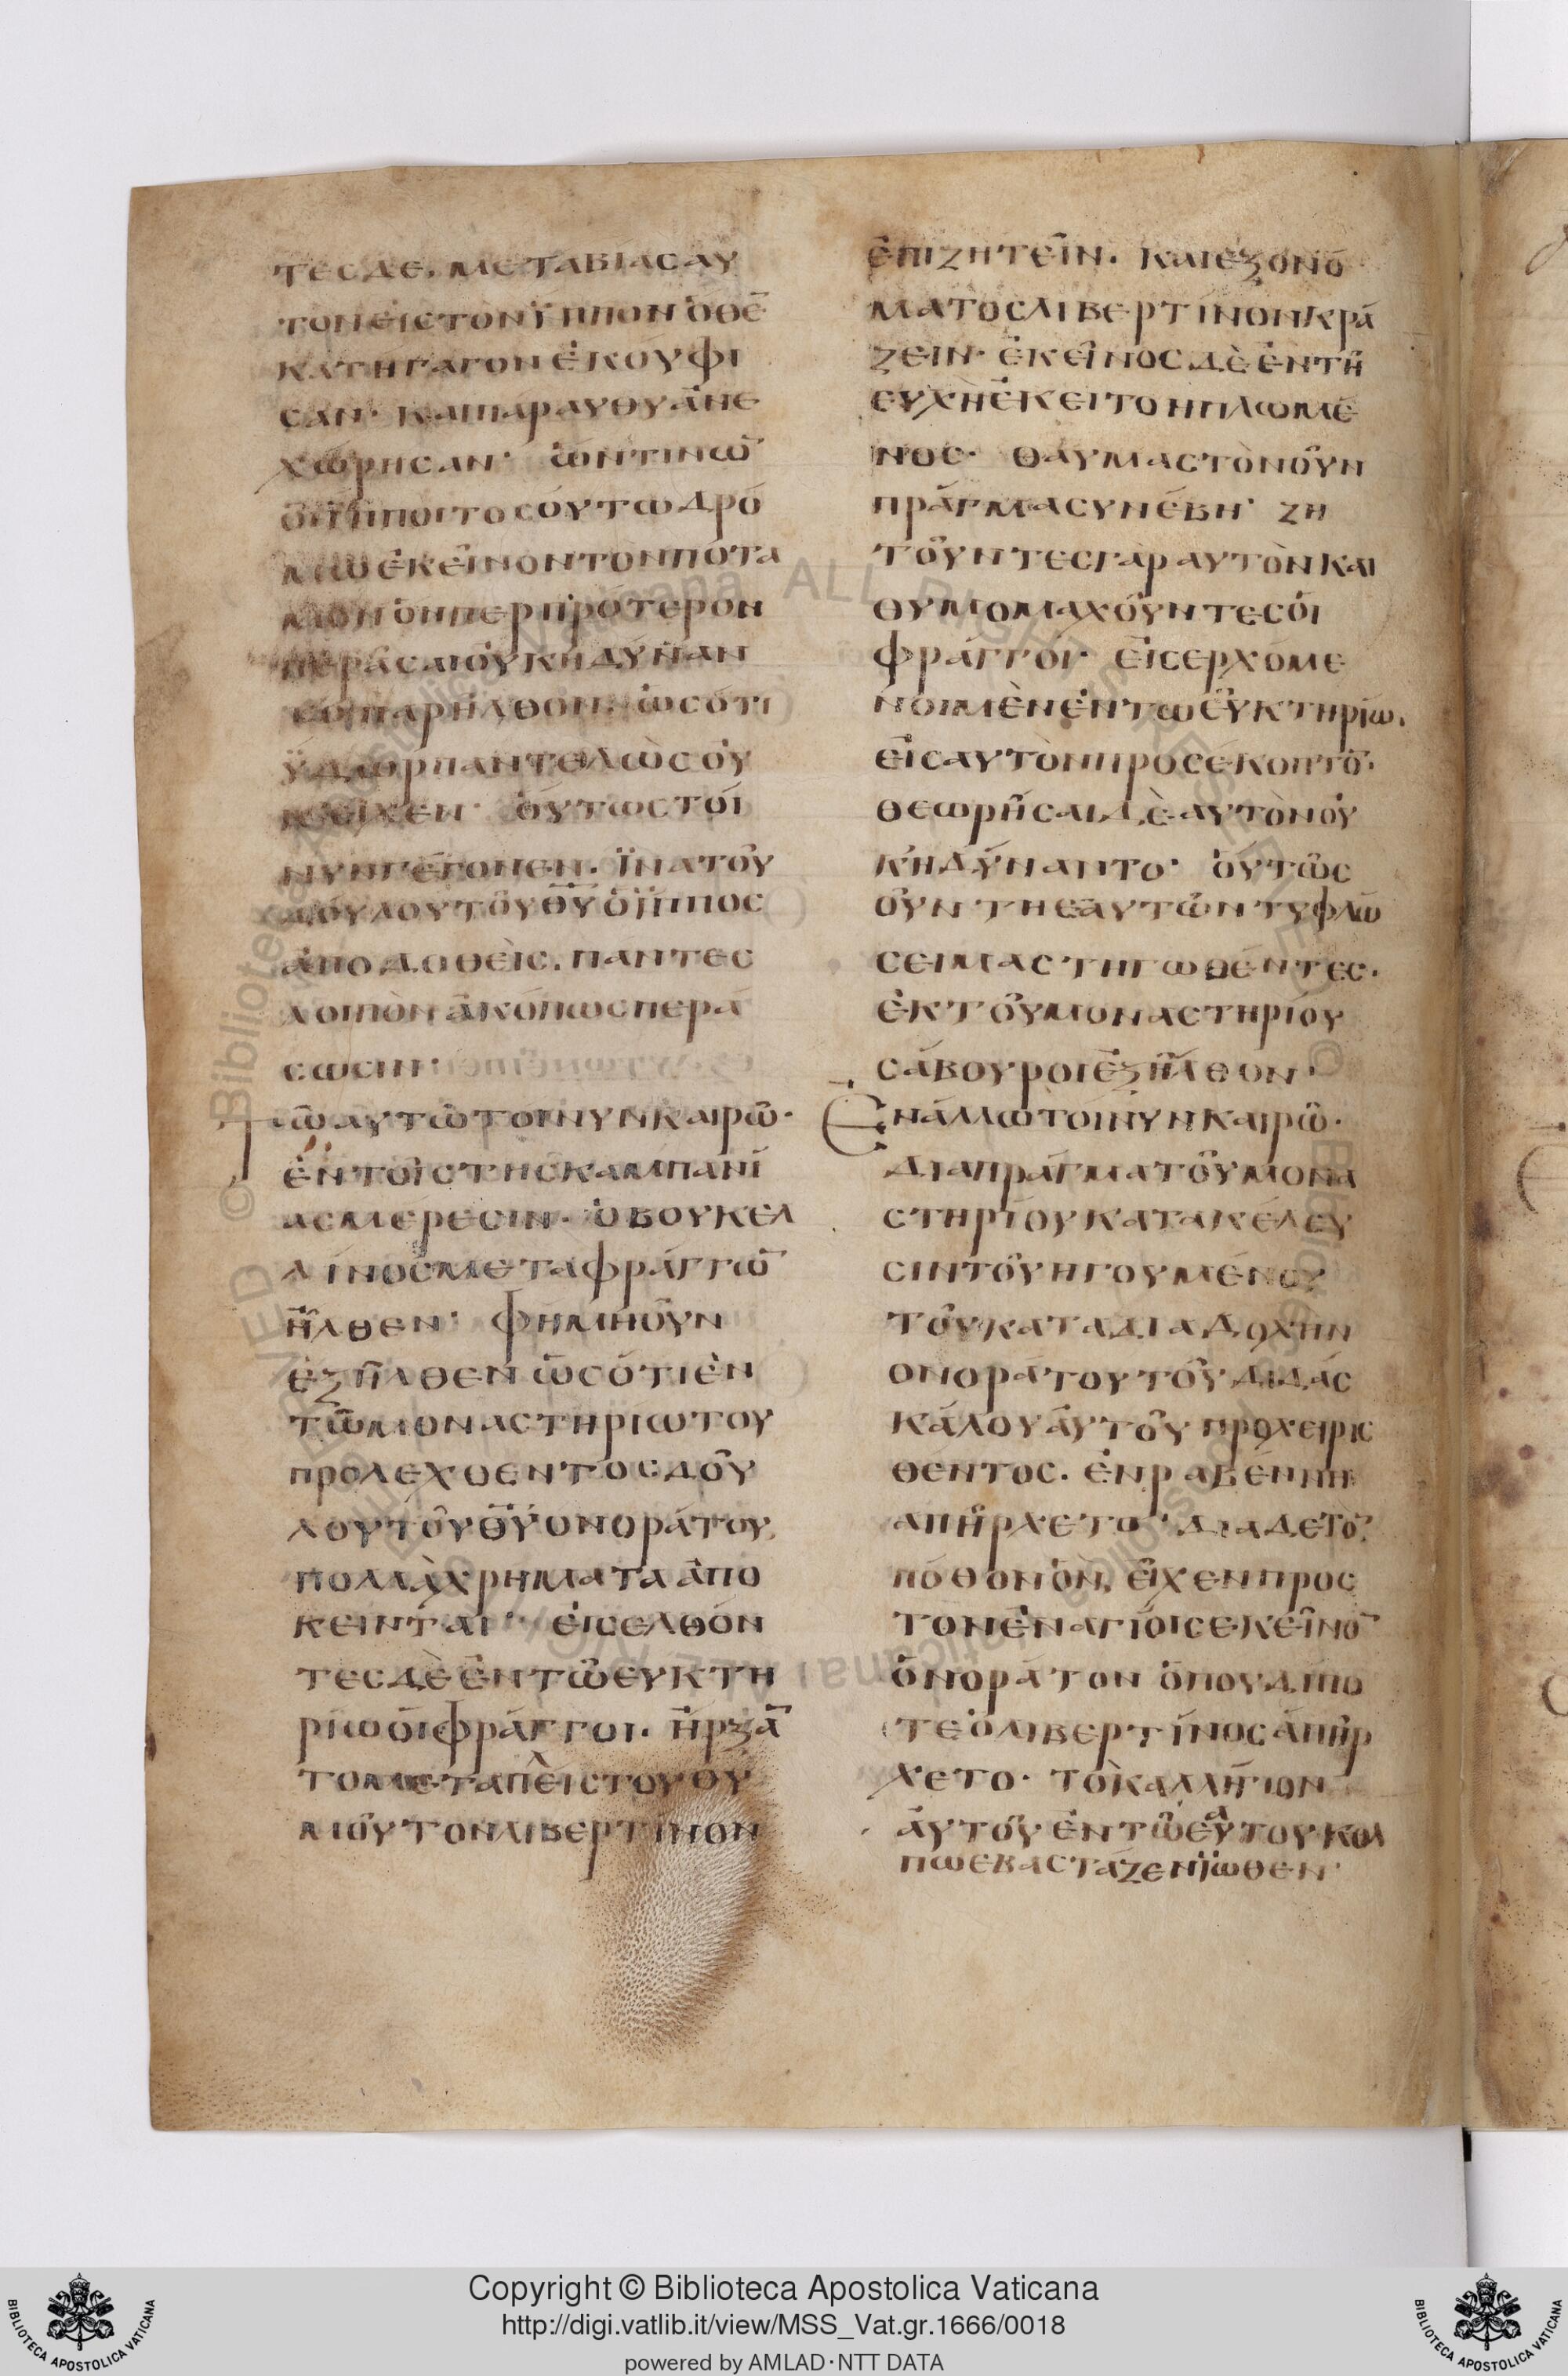 τεσδε. μεταβίασαυ
τονεἰςτονϊππονὅθε̄
κατηγαγονἐκουφι
σαν· καιπαραυθυἀνε
χώρησαν· ὧντινω̄
οἵϊπποιτοσούτωδρό
μωἐκεῖνοντονποτα
μονὅνπερπρότερον
περᾶσαιοὐκηδύναν
τοπαρῆλθον. ὡσότι
ϋδωρπαντελῶςοὐ
κεἶχεν· ὅυτωςτοί
νυνγέγονεν. ϊνατοῦ
δούλουτοῦθ̅υ̅ὁϊππος
ἀποδοθεὶς. παντες
λοιπὸνἀκόπωςπερά
σωσιν·
Τῶαυτῶτοινυνκαιρῶ·
ἐντοῖςτῆςκαμπανί
αςμέρεσιν· ὁβουκελ
λίνοςμεταφράγγω̄
ἦλθεν· φημηοῦν
ἐξῆλθενὡσότιἐν
τῶμοναστηριωτου
προλεχθεντοςδού
λουτοῦθ̅υ̅ὁνοράτου,
πολλὰχρηματαἀπο
κεινται· ἐισελθόν
τεςδὲἐντῶευκτη
ρίωὁιφράγγοι. ἤρξᾱ
τομεταπὲιστουθυ
μοῦτονλιβερτίνον
ἐπιζητεῖν. καιεξονό
ματοςλιβερτίνονκρά
ζειν· ἐκεῖνοςδὲἐντῆ
ευχῆἔκειτοηπλωμέ
νος· θαυμαστὸνοῦν
πρᾶγμασυνέβη· ζη
τοῦντεςγὰραυτὸνκαι
θυμομαχοῦντεςὁι
φράγγοι· εἰσερχόμε
νοιμὲνἐντωεὐκτηρίω.
εἰςαυτὸνπροσέκοπτο̄·
θεωρῆσαιδὲαυτὸνοὐ
κἠδύναντο· ὁυτῶς
οῦντηεαυτῶντυφλώ
σειμαστηγωθέντες.
ἐκτοῦμοναστηρίου
σάβουροιἐξῆλθον·
Ἐνάλλωτοίνυνκαιρῶ·
διαπράγματοῦμονα
στηρίουκατακέλευ
σιντοῦηγουμένου
τοῦκαταδιαδοχην
ονοράτουτοῦδιδάς
κάλουἀυτοῦπροχειρις
θέντος. ἐνραβέννη
απῆρχετο· διαδετο̄
πόθονὃν, εἶχενπρος
τονἐναγίοιςεκεῖνο̄
ὁνοράτονὅπουδίπο
τεὁλιβερτίνοςἀπῆρ
χετο· τὸκαλλήγιον
ἀυτοῦἐντῶεαυτουκολ
πωεβασταζενϊωθεν·
Copyright © Biblioteca Apostolica Vaticana
http://digi.vatlib.it/view/MSS_Vat.gr.1666/0018
powered by AMLAD·NTT DATA
BIBLIOTECA APOSTOLICA VATICANA
BIBLIOTECA APOSTOLICA VATICANA